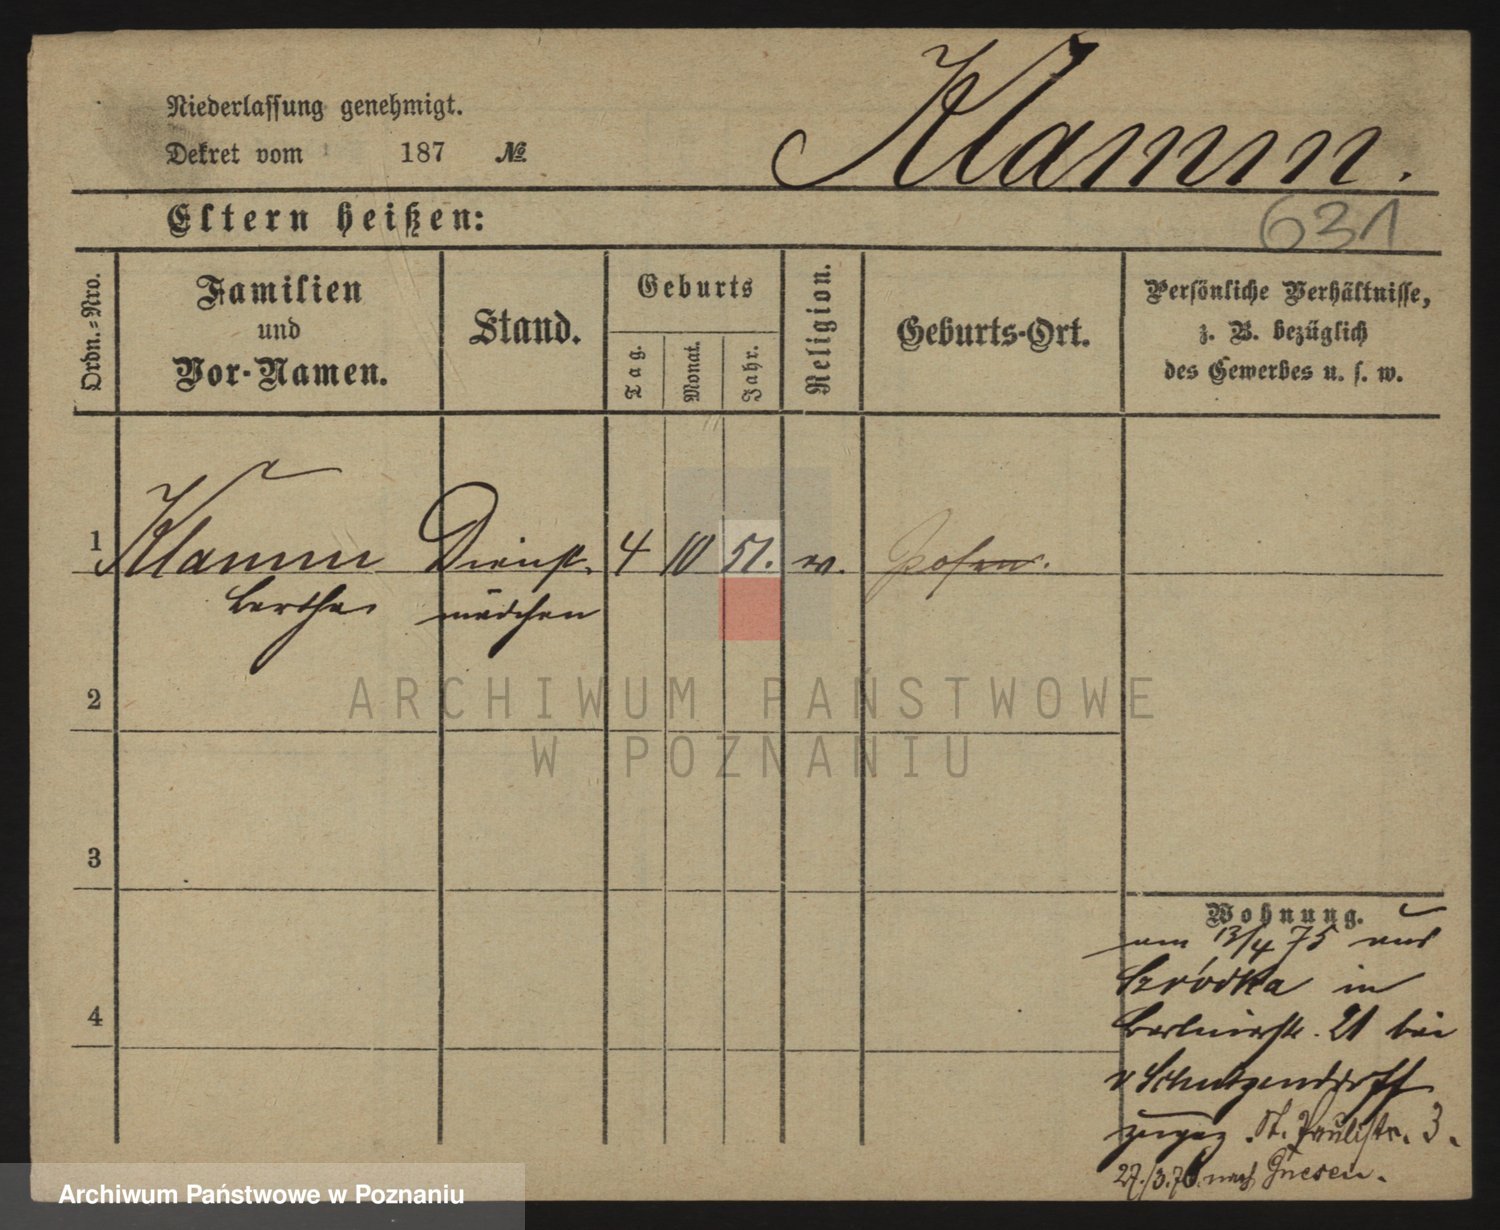 Klamm.
Niederlassung genehmigt.
Dekret vom 187 №
Eltern heißen:
631
Ordn.=Nro.
Familien
und
Vor-Namen.
Stand.
Geburts
Tag.
Monat.
Jahr.
Religion.
Geburts-Ort.
Persönliche Verhältnisse,
z. B. bezüglich
des Gewerbes u. s. w.
1 Klamm Dienst- 4 10 51. ev. Posen.
Bertha mädchen
ARCHIWUM PAŃSTWOWE
W POZNANIU
2
3
4
Wohnung.
am 13/4 75 aus
Szródka in
Berlinerstr. 21 bei
v
zugez. St. Paulistr. 3.
27./3.76. nach Gnesen.
Archiwum Państwowe w Poznaniu